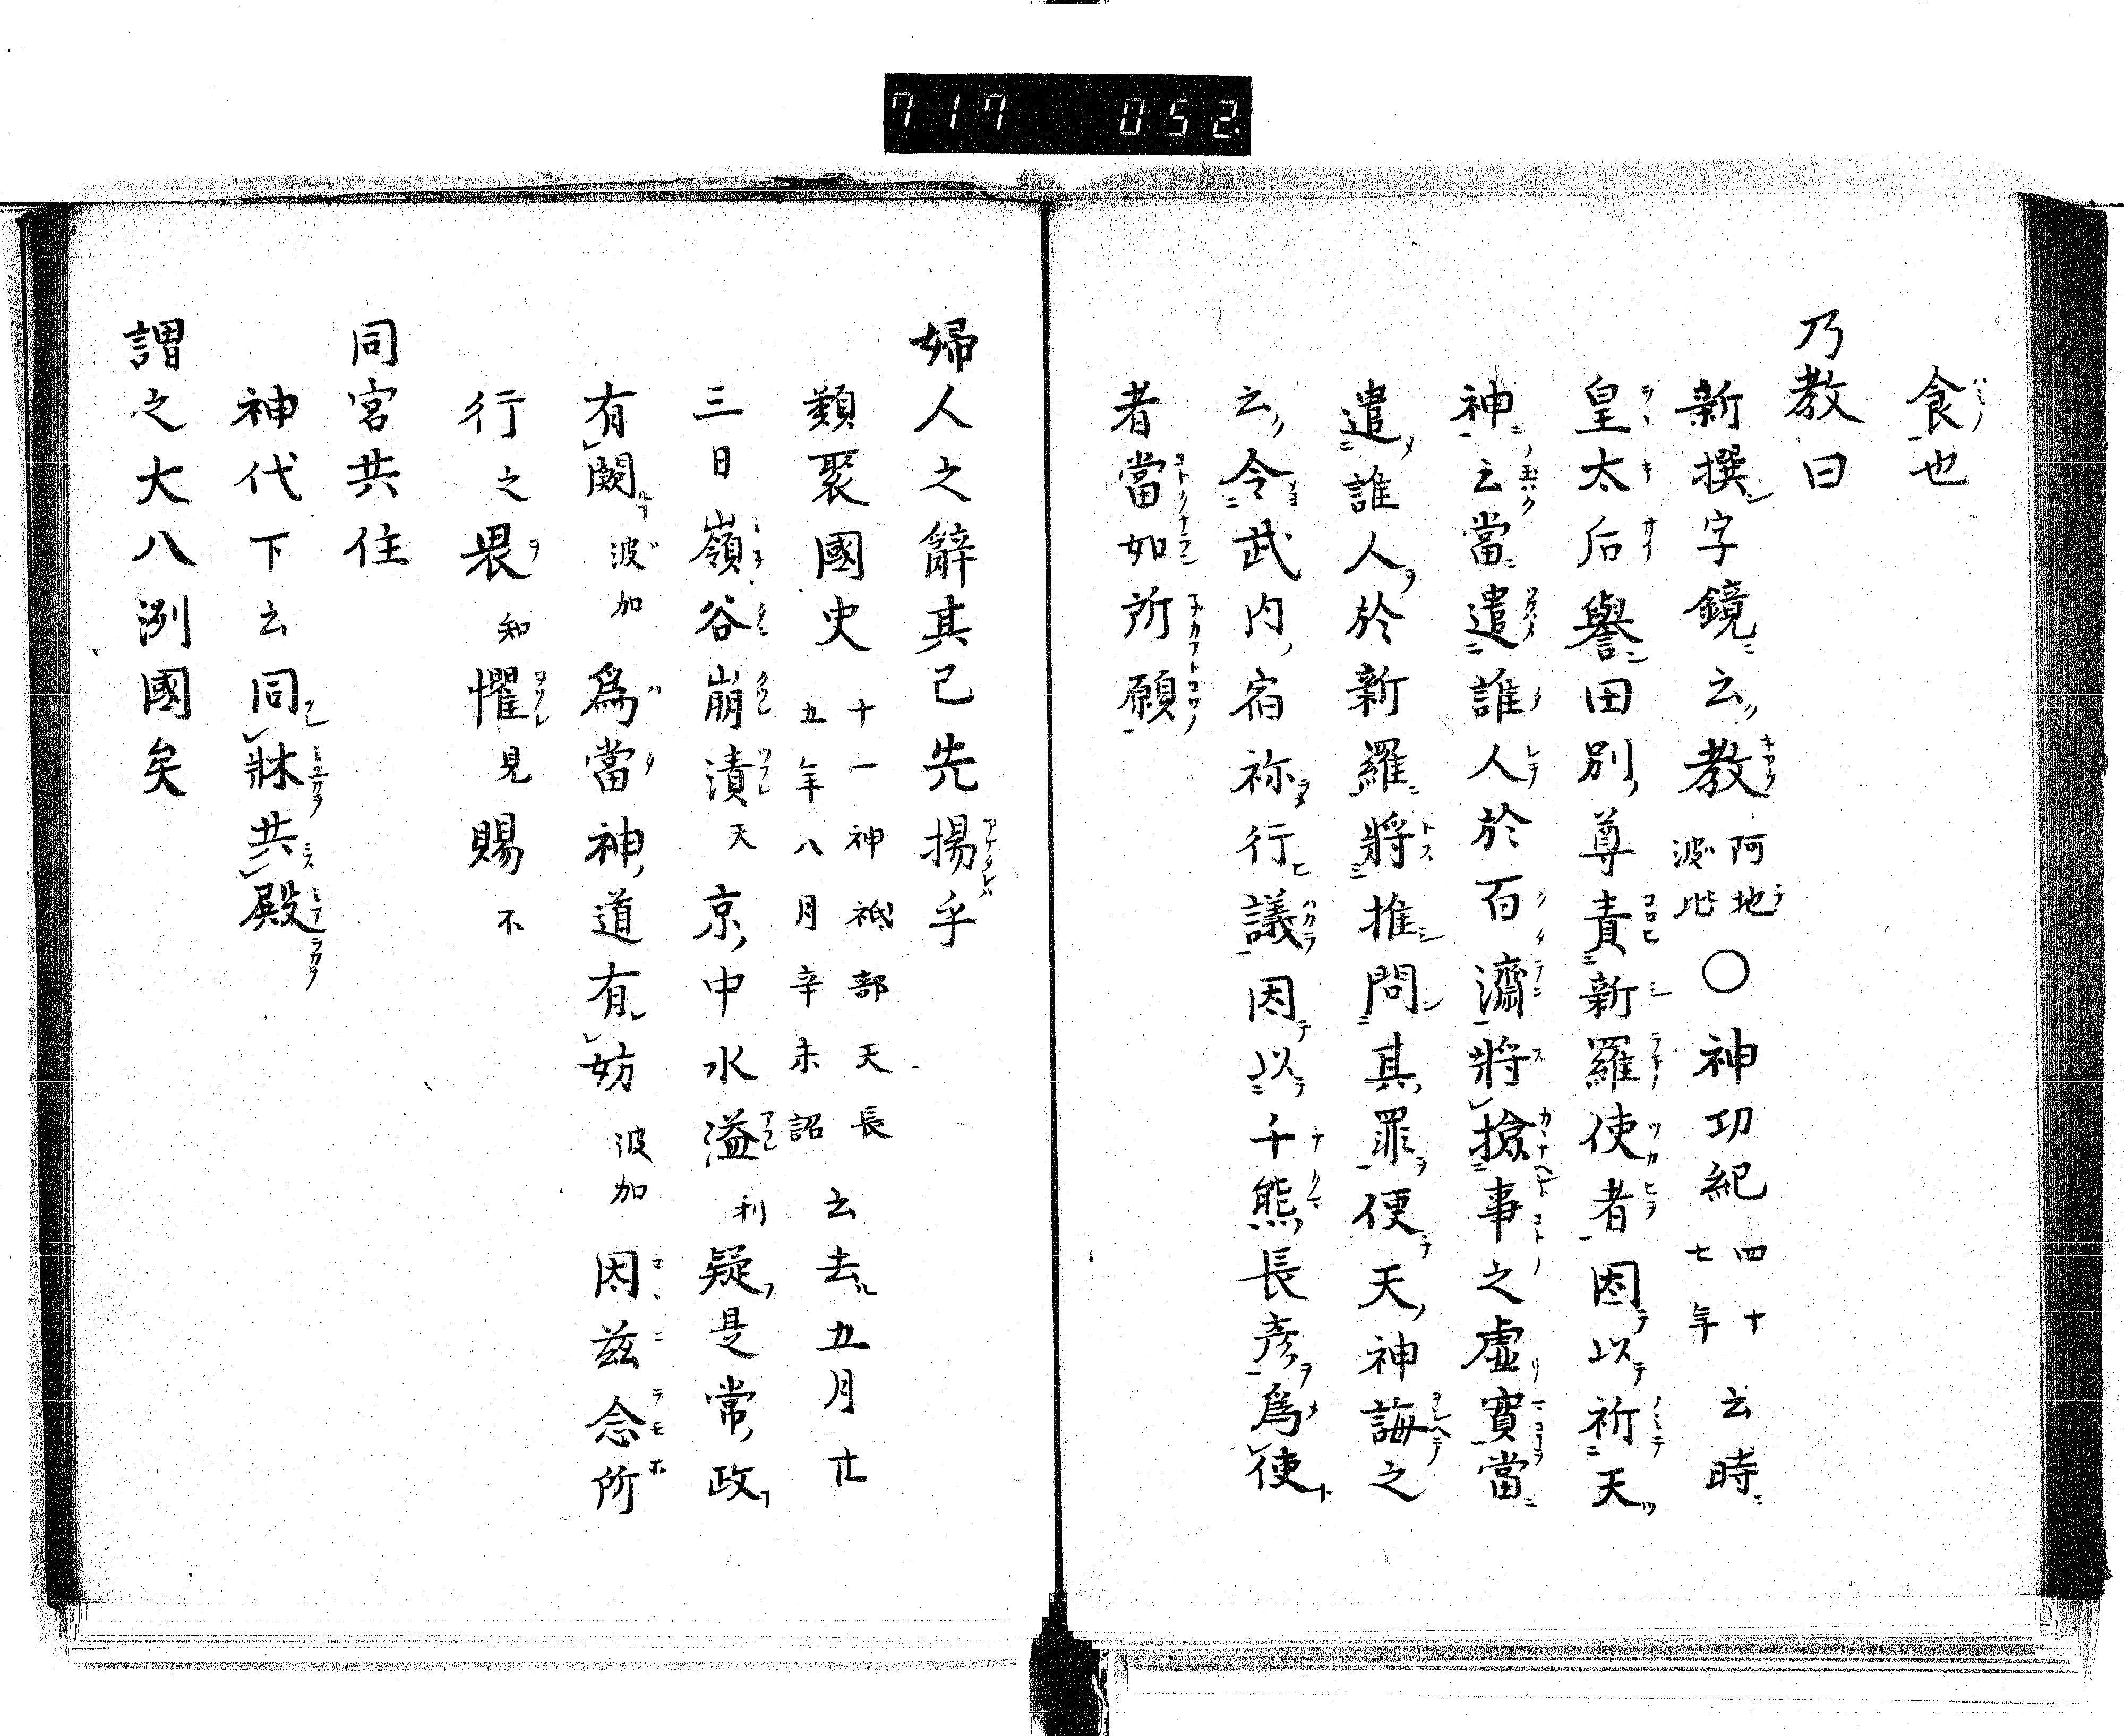 717 052.
食也
乃教曰
新撰字鏡云教阿地波比○神功紀四十七年云時
皇太后譽田別尊責新羅使者因以祈天
神云當遣誰人於百濟將撿事之虛實當
遣誰人於新羅將推問其罪便天神誨之
云令武内宿祢行議因以千熊長彦爲使
者當如所願
婦人之辭其已先揚乎
類聚國史十一神祇部天長五年八月辛未詔云去五月廿
三日嶺谷崩漬天京中水溢利疑是常政
有闕波加爲當神道有妨波加因茲念所
行之畏知懼見賜不
同宮共住
神代下云同牀共殿
謂之大八洌國矣